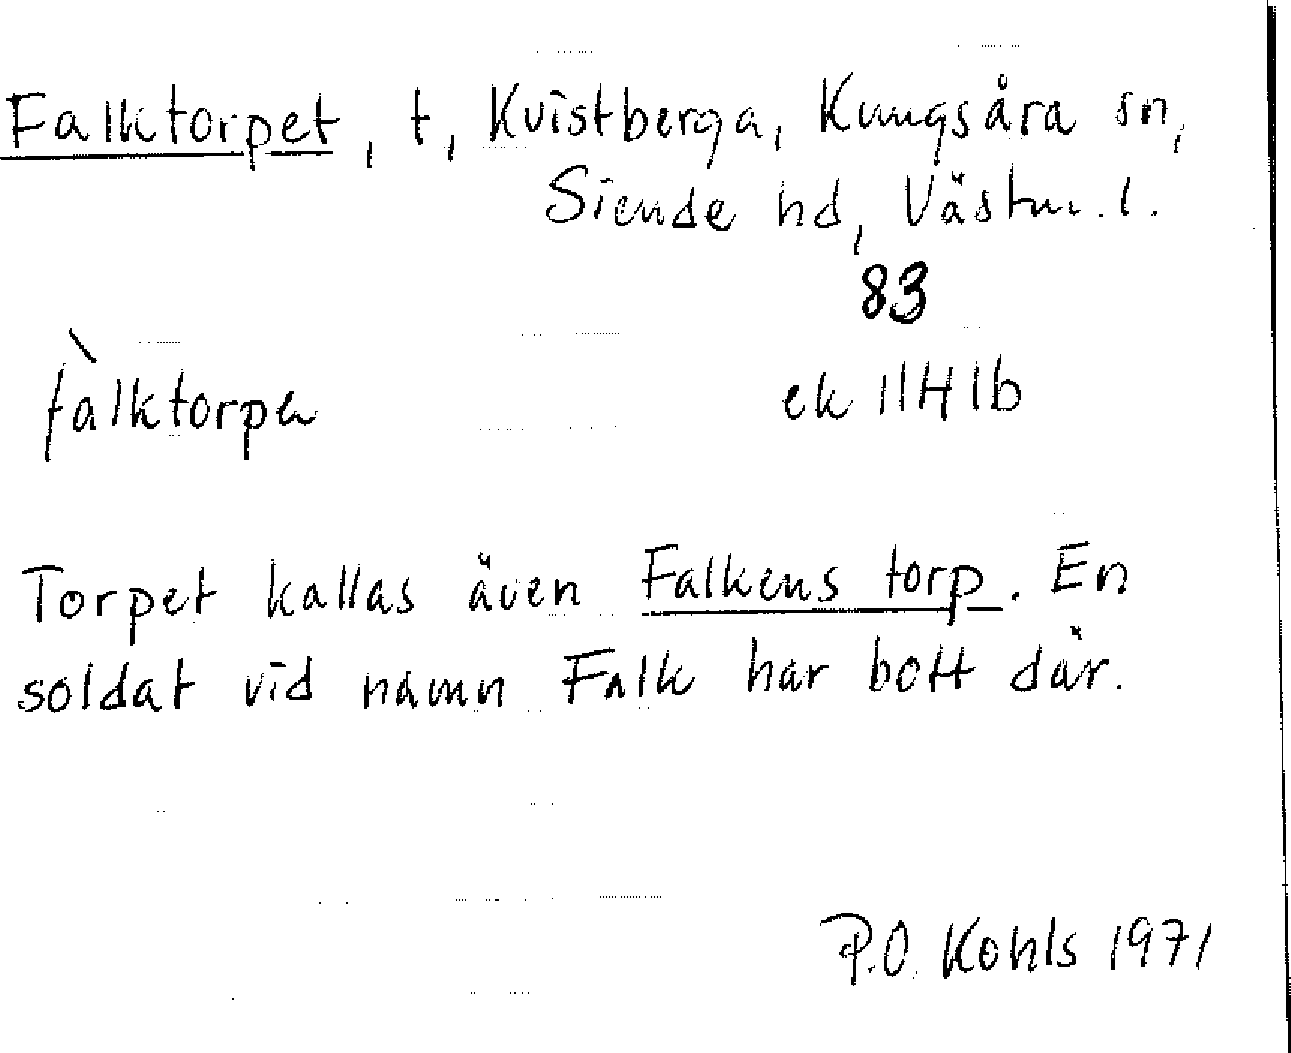 Falktorpet, t, Kvistberga, Kungsåra sn,
Siende hd, Västm. l.
83
fàlktorpa
ek 11H1b
Torpet kallas även Falkens torp. En
soldat vid namn Falk har bott där.
P.O. Kohls 1971